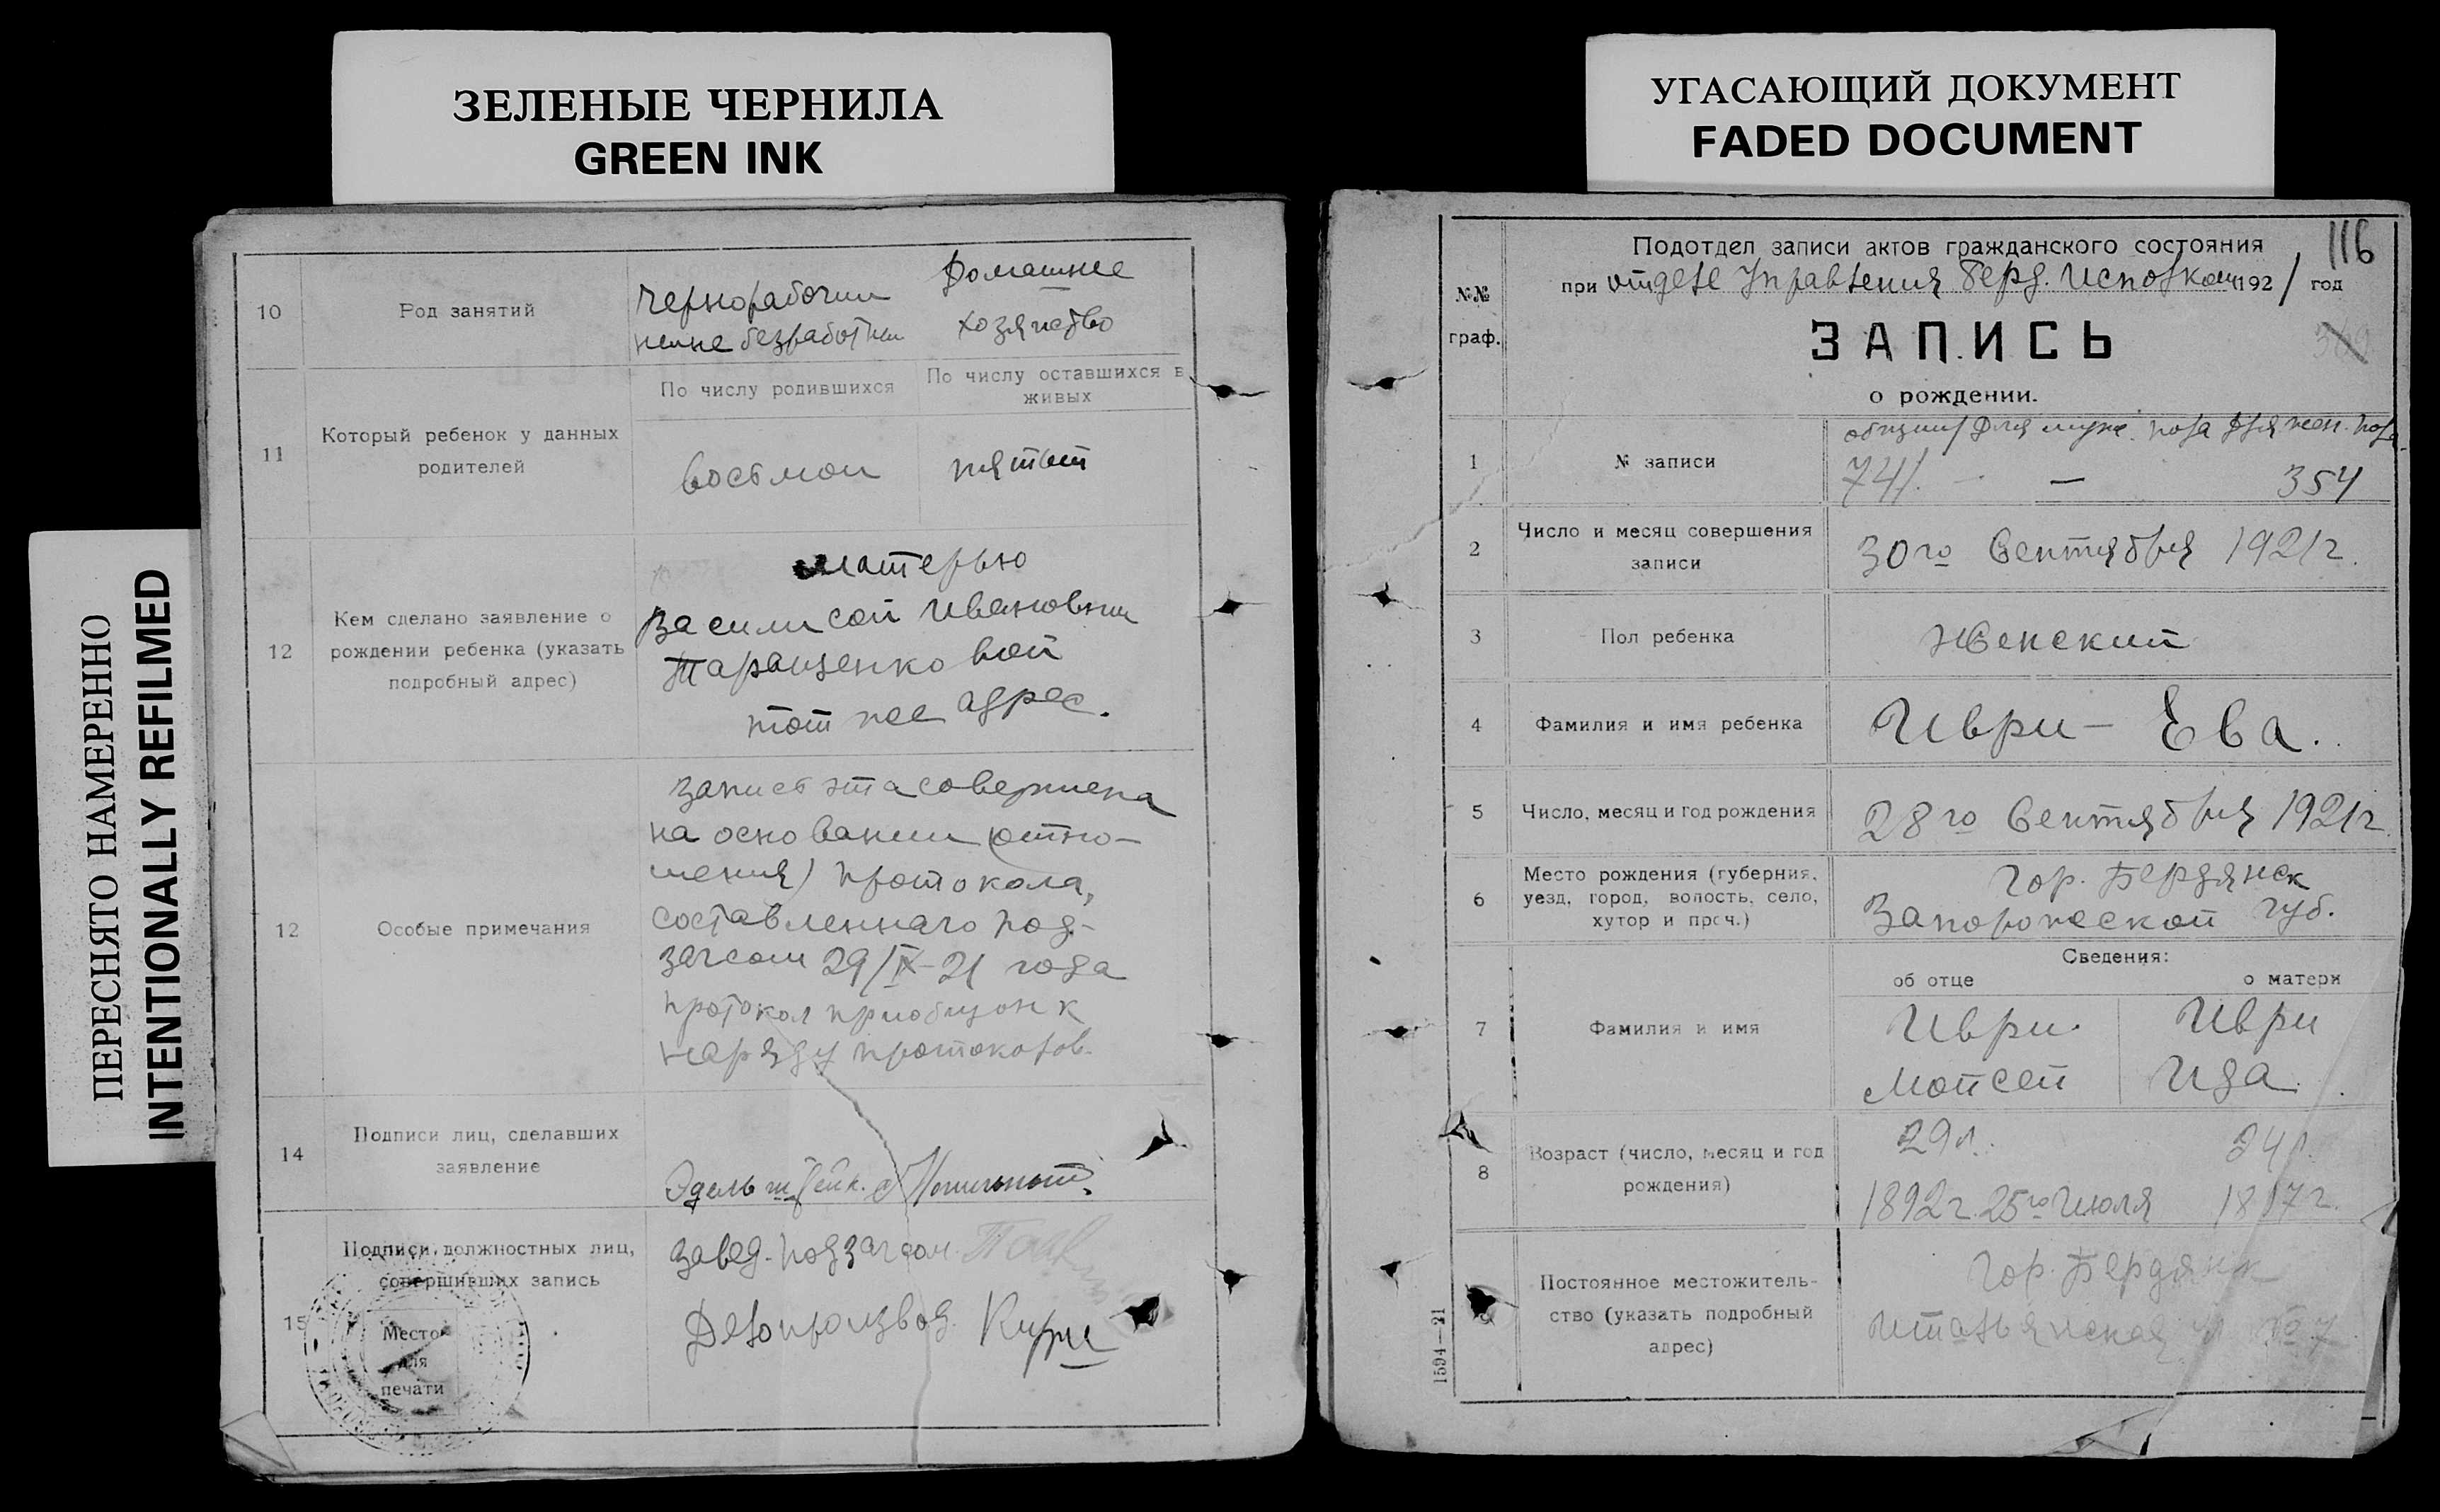 ЗЕЛЕНЫЕ ЧЕРНИЛА
GREEN INK
УГАСАЮЩИЙ ДОКУМЕНТ
FADED DOCUMENT
ПЕРЕСНЯТО НАМЕРЕННО
INTENTIONALLY REFILMED
10
Род занятий
Чернорабочий
ныне безработный
Домашнее
хозяйство
11
Который ребенок у данных
родителей
По числу родившихся
По числу оставшихся в
живых
восьмой
пятый
12
Кем сделано заявление о
рождении ребенка (указать
подробный адрес)
матерью
Василисой Ивановной
Таращенковой
тот же адрес.
12
Особые примечания
запись эта совершена
на основании (отно-
шения) протокола,
составленнаго под-
загсом 29/IX-21 года
протокол приобщон к
наряду протоколов.
14
Подписи лиц, сделавших
заявление
15
Подписи должностных лиц,
совершивших запись
завед. подзагсом
Делопроизвод.
Место
для
печати
116
№№
граф.
Подотдел записи актов гражданского состояния
при отделе Управления Берд. Исполком 1921 год
ЗАПИСЬ
369
о рождении.
1
№ записи
общий/для мужс. пола для жен. пола
741. — 354
2
Число и месяц совершения
записи
30го Сентября 1921г.
3
Пол ребенка
Женский
4
Фамилия и имя ребенка
Иври - Ева.
5
Число, месяц и год рождения
28го Сентября 1921г.
6
Место рождения (губерния,
уезд, город, волость, село,
хутор и проч.)
Гор. Бердянск
Запорожской губ.
Сведения:
об отце
о матери
7
Фамилия и имя
Иври
Мойсей
Иври
Ида.
8
Возраст (число, месяц и год
рождения)
29л.
24л.
1892г. 25го Июля
1897г.
9
Постоянное местожитель-
ство (указать подробный
адрес)
Гор. Бердянск
Итальянская ул №7
1594—21